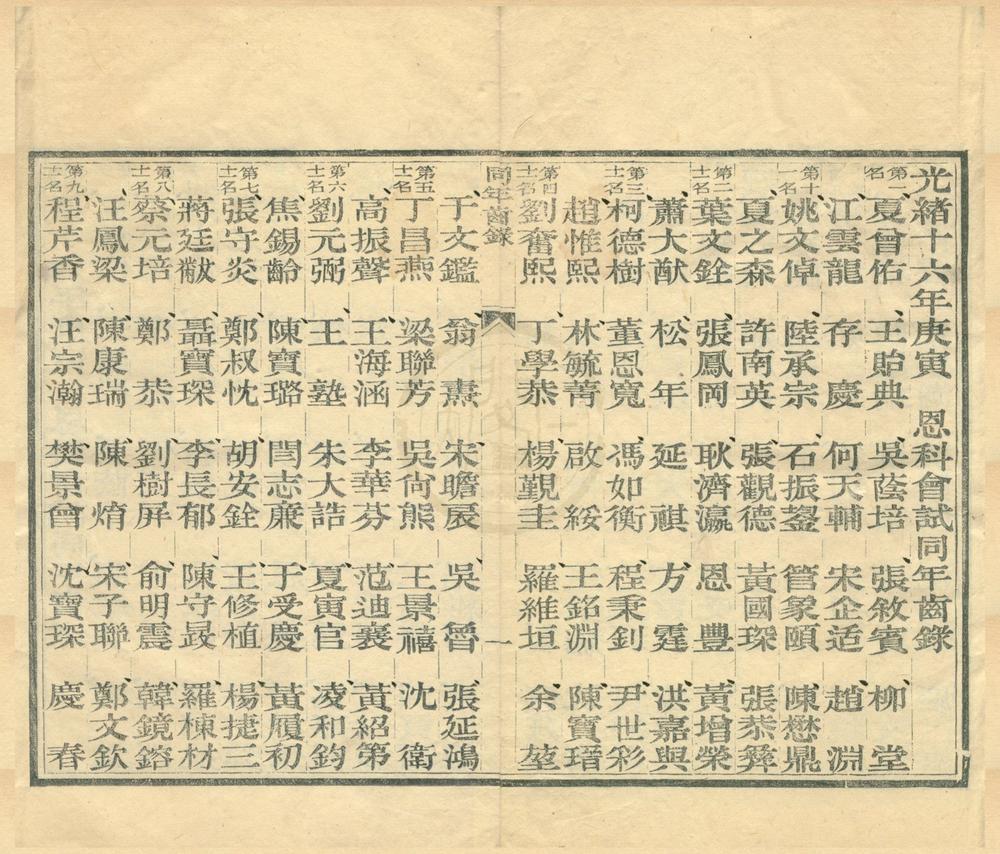 光緒十六年庚寅　恩科會試同年齒錄
第一名　夏曾佑　王貽典　吳蔭培　張敘賓　柳　堂
江雲龍　存　慶　何天輔　宋企适　趙　淵
第十一名　姚文倬　陸承宗　石振鋆　管象頤　陳懋鼎
夏之森　許南英　張觀德　黃國琛　張恭彝
第二十名　葉文銓　張鳳岡　耿濟瀛　恩　豐　黃增榮
蕭大猷　松　年　延　祺　方　霆　洪嘉與
第三十名　柯德樹　董恩寬　馮如衡　程秉釗　尹世彩
趙惟熙　林毓菁　啟　綏　王銘淵　陳寶瑨
第四十名　劉奮熙　丁學恭　楊覲圭　羅維垣　余　堃
同年齒錄　一
于文鑑　翁　燾　宋瞻扆　吳　魯　張延鴻
第五十名　丁昌燕　梁聯芳　吳尙熊　王景禧　沈　衛
高振聲　王海涵　李華芬　范迪襄　黃紹第
第六十名　劉元弼　王　塾　朱大誥　夏寅官　凌和鈞
焦錫齡　陳寶璐　閆志廉　于受慶　黃履初
第七十名　張守炎　鄭叔忱　胡安銓　王修植　楊捷三
蔣廷黻　聶寶琛　李長郁　陳守晸　羅棟材
第八十名　蔡元培　鄭　恭　劉樹屏　俞明震　韓鏡鎔
汪鳳梁　陳康瑞　陳　焴　宋子聯　鄭文欽
第九十名　程芹香　汪宗瀚　樊景曾　沈寶琛　慶　春